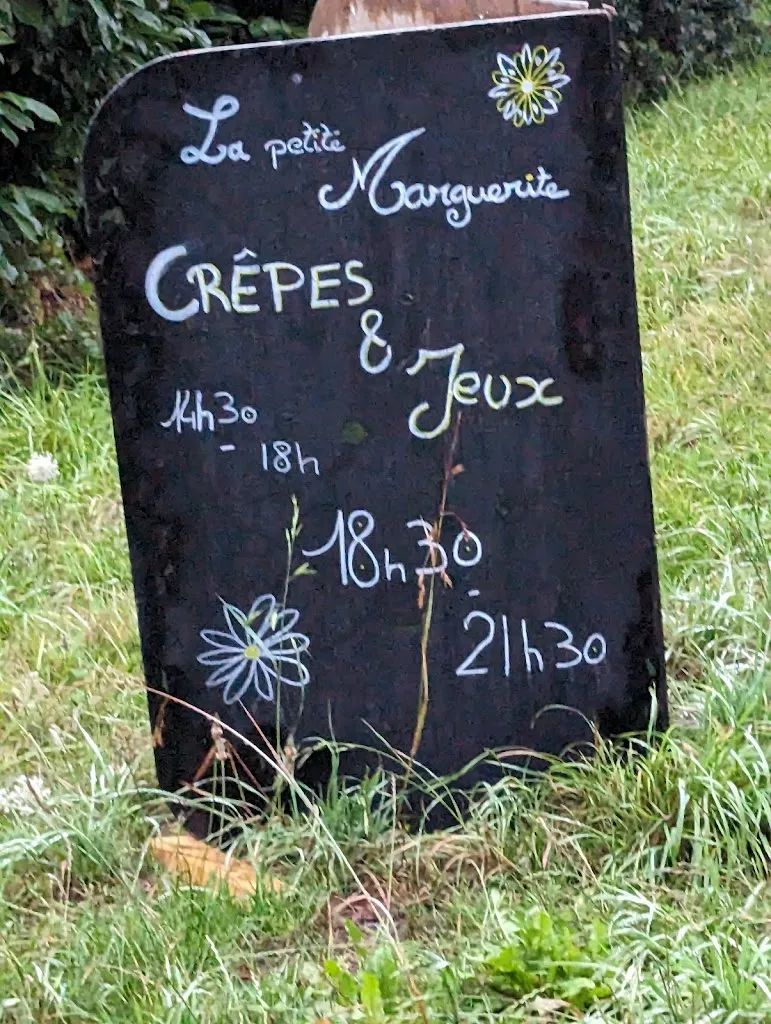 La petite
Marguerite
CRÊPES
&
Jeux
14h30
- 18h
18h30
-
21h30